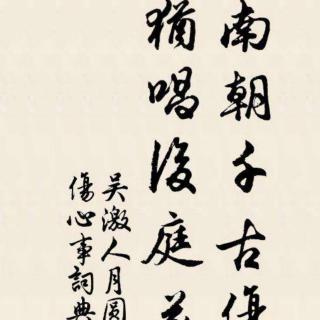 南朝千古傷
猶唱後庭花
吴激人月圆
傷心事詞典